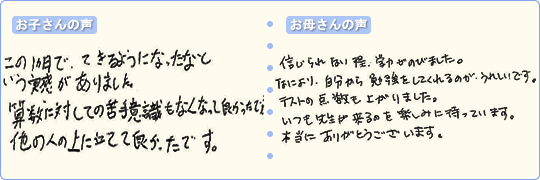 お子さんの声
この1カ月で、できるようになったなと
いう実感がありました。
算数に対しての苦手意識もなくなって良かったです
他の人の上に立てて良かったです。
お母さんの声
信じられない程、学力がのびました。
なにより、自分から勉強をしてくれるのが、うれしいです。
テストの点数も上がりました。
いつも先生が来るのを楽しみに待っています。
本当にありがとうございます。